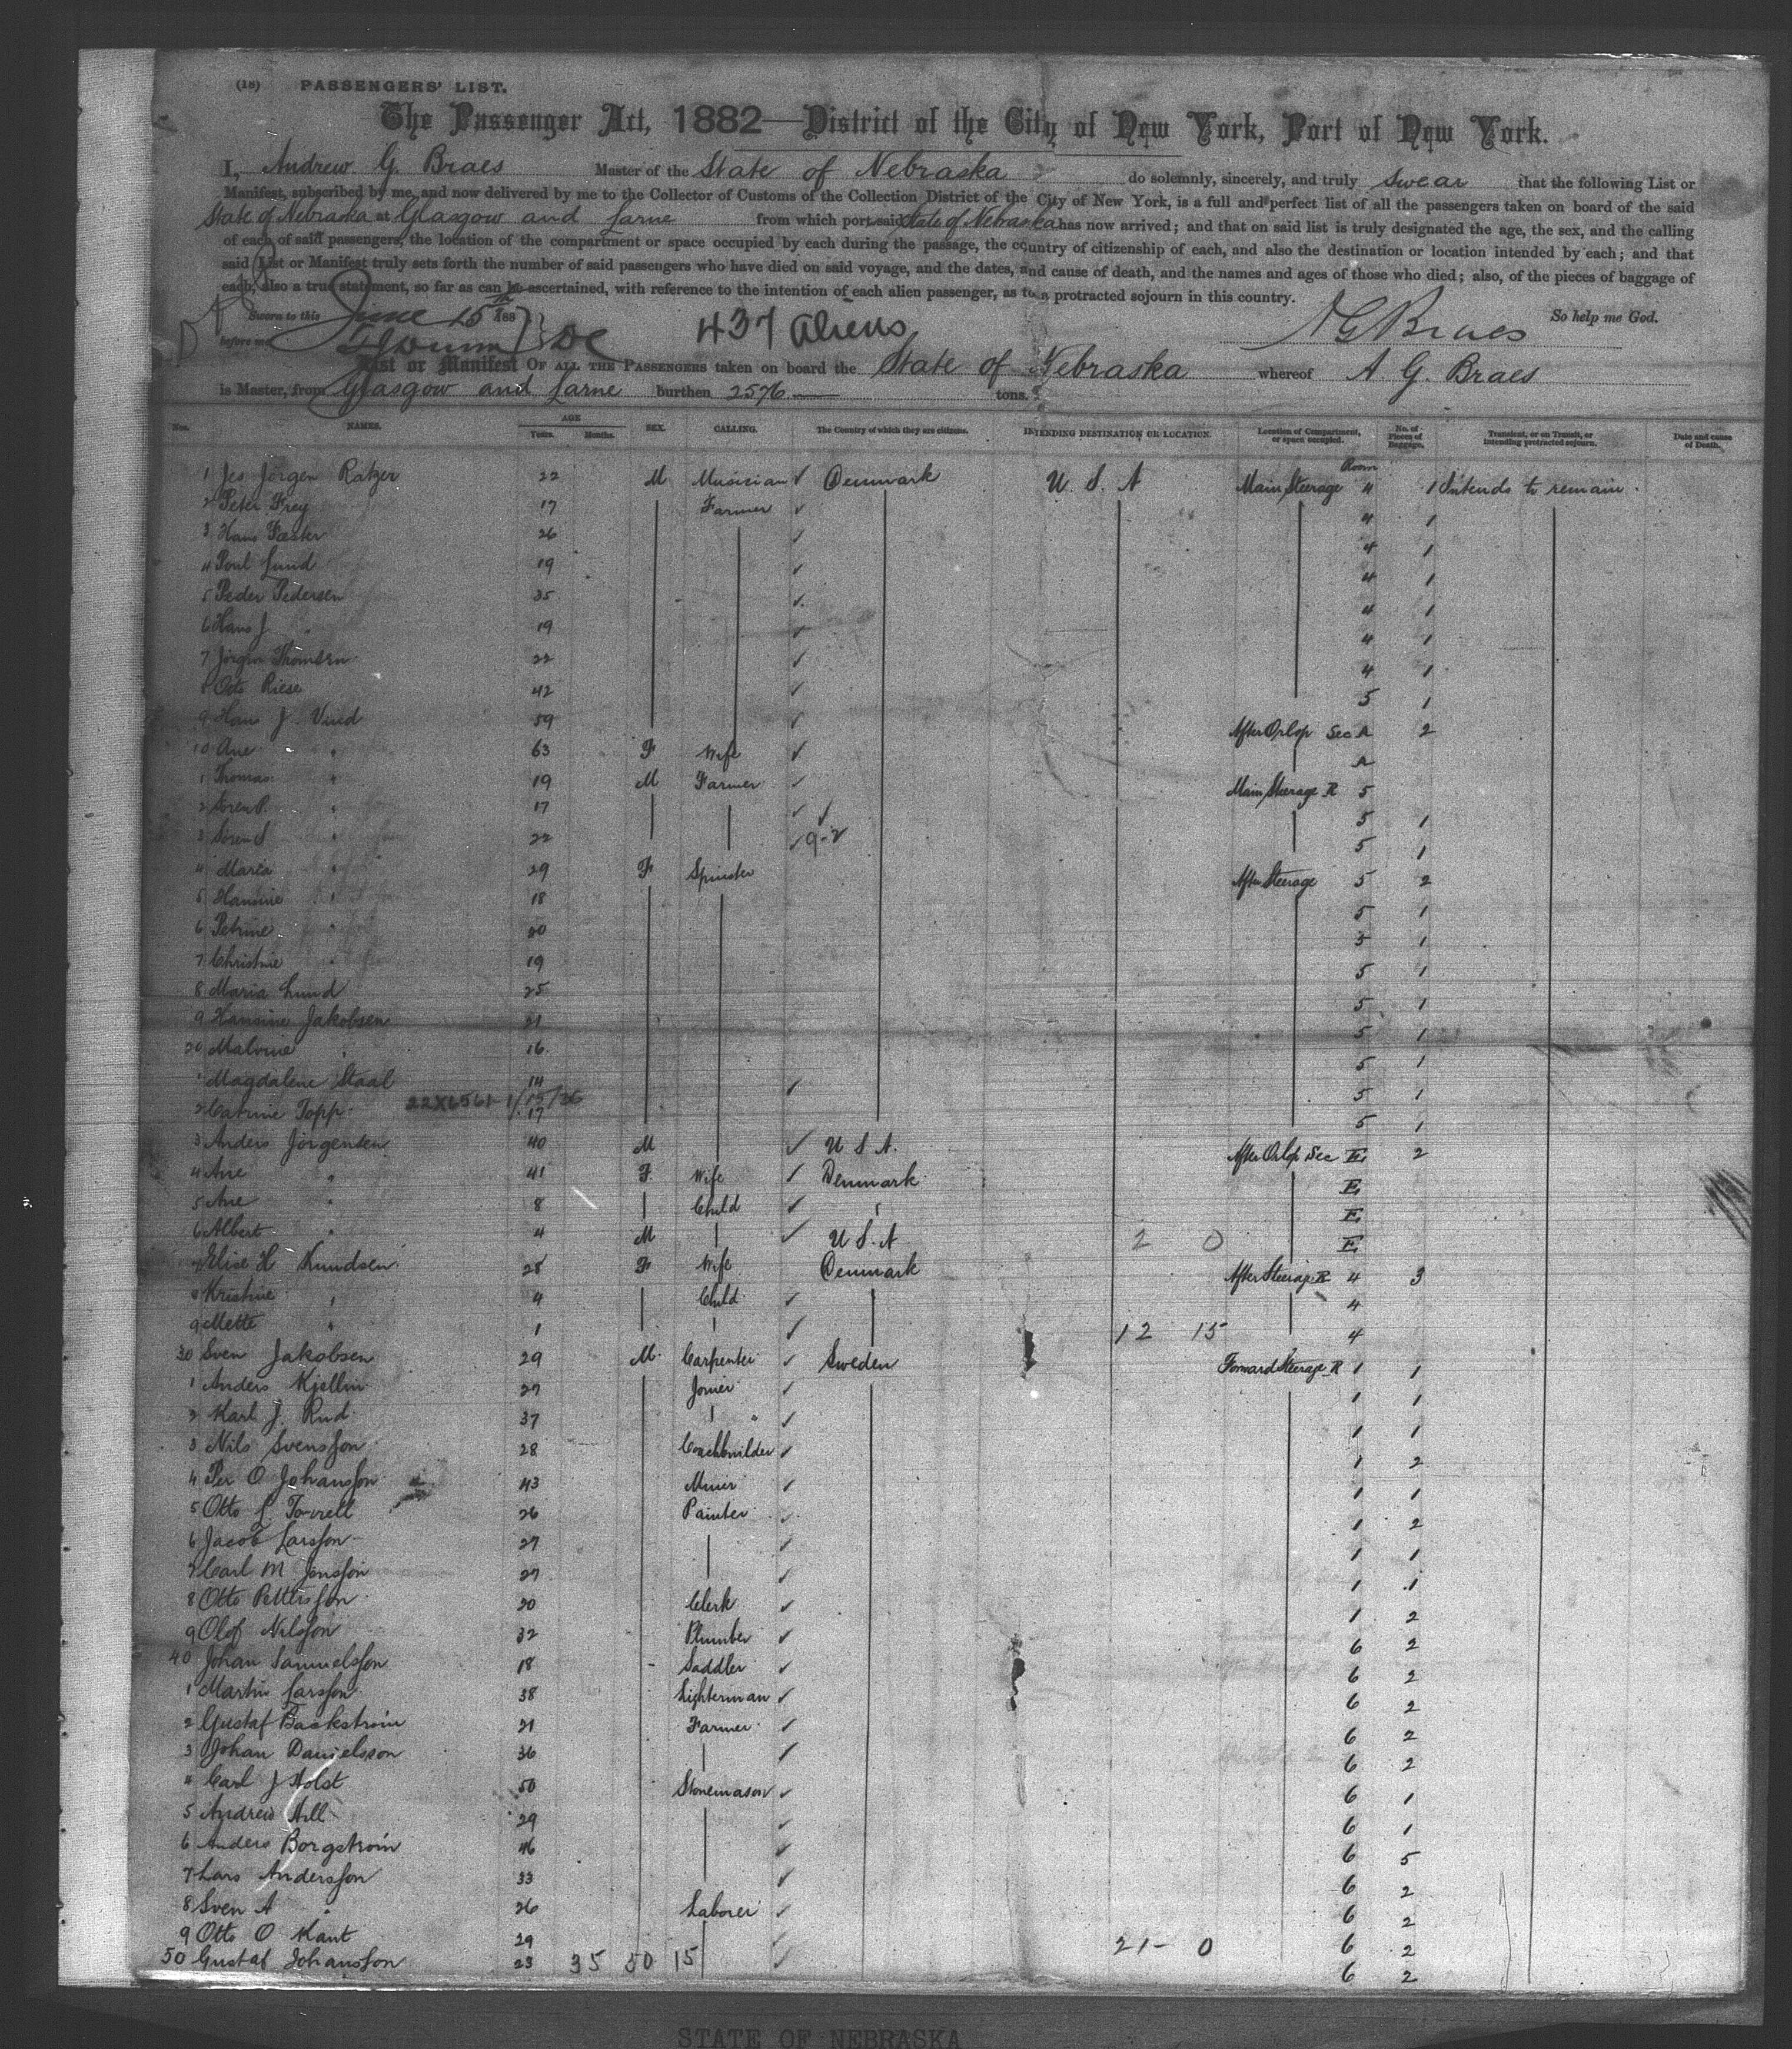 (18) PASSENGERS' LIST.
The Passenger Act, 1882—District of the City of New York, Port of New York.
I, Andrew G. Braes Master of the State of Nebraska do solemnly, sincerely, and truly swear that the following List or
Manifest, subscribed by me, and now delivered by me to the Collector of Customs of the Collection District of the City of New York, is a full and perfect list of all the passengers taken on board of the said
State of Nebraska at Glasgow and Larne from which port said State of Nebraska has now arrived; and that on said list is truly designated the age, the sex, and the calling
of each of said passengers, the location of the compartment or space occupied by each during the passage, the country of citizenship of each, and also the destination or location intended by each; and that
said List or Manifest truly sets forth the number of said passengers who have died on said voyage, and the dates, and cause of death, and the names and ages of those who died; also, of the pieces of baggage of
each, also a true statement, so far as can be ascertained, with reference to the intention of each alien passenger, as to a protracted sojourn in this country.
Sworn to this June 15th 188 So help me God.
before me DC 437 Aliens A G Braes
List or Manifest OF ALL THE PASSENGERS taken on board the State of Nebraska whereof A. G. Braes
is Master, from Glasgow and Larne burthen 2576 tons.
Nos. NAMES. AGE Years. Months. SEX. CALLING. The Country of which they are citizens. INTENDING DESTINATION OR LOCATION. Location of Compartment, or space occupied. No. of Pieces of Baggage. Transient, or on Transit, or intending protracted sojourn. Date and cause of Death.
1 Jes Jörgen Ratzer 22 M Musician ✓ Denmark U. S. A Main Steerage Room 4 1 Intends to remain
2 Peter Frey 17 Farmer ✓ 4 1
3 Hans Fæster 26 ✓ 4 1
4 Poul Lund 19 ✓ 4 1
5 Peder Pedersen 35 ✓ 4 1
6 Hans J. " 19 ✓ 4 1
7 Jörgen Thomsen 22 ✓ 4 1
8 Otto Riese 42 ✓ 5 1
9 Hans J. Vind 59 ✓ After Orlop Sec A 2
10 Ane " 63 F Wife ✓ A
1 Thomas " 19 M Farmer ✓ Main Steerage R 5
2 Soren P. " 17 ✓ ✓ 5 1
3 Soren S " 22 ✓ 9-2 5 1
4 Maria " 29 F Spinster After Steerage 5 2
5 Hansine " 18 5 1
6 Petrine " 20 5 1
7 Christine " 19 5 1
8 Maria Lund 25 5 1
9 Hansine Jakobsen 21 5 1
20 Malvine " 16 5 1
1 Magdalene Staal 14 ✓ 5 1
2 Catrine Topp 22X6561 1/15/26 17 5 1
3 Anders Jörgensen 40 M ✓ U S A. After Orlop Sec E 2
4 Ane " 41 F. Wife ✓ Denmark E
5 Ane " 8 Child ✓ " E
6 Albert " 4 M ✓ U S. A 2 0 E
7 Elise H Knudsen 28 F Wife Denmark After Steerage R 4 3
8 Kristine " 4 Child ✓ 4
9 Mette " 1 ✓ 12 15 4
30 Sven Jakobsen 29 M Carpenter ✓ Sweden Forward Steerage R 1 1
1 Anders Kjellin 27 Joiner ✓ 1 1
2 Karl J. Rud 37 " ✓ 1 1
3 Nils Svensson 28 Coachbuilder ✓ 1 2
4 Per O Johansson 43 Miner ✓ 1 1
5 Otto L Torrell 26 Painter ✓ 1 2
6 Jacob Larsson 27 ✓ 1 1
7 Carl M Jonsson 27 ✓ 1 1
8 Otto Pettersson 20 Clerk ✓ 1 2
9 Olof Nilsson 32 Plumber ✓ 6 2
40 Johan Samuelsson 18 Saddler ✓ 6 2
1 Martin Larsson 38 Lighterman ✓ 6 2
2 Gustaf Backstrom 21 Farmer ✓ 6 2
3 Johan Danielsson 36 ✓ 6 2
4 Carl J Holst 50 Stonemason ✓ 6 1
5 Andrew Hill 29 ✓ 6 1
6 Anders Borgstrom 46 ✓ 6 5
7 Lars Andersson 33 ✓ 6 2
8 Sven A " 26 Laborer ✓ 6 2
9 Otto O Kant 29 21- 0 6 2
50 Gustaf Johansson 23 35 50 15 ✓ 6 2
STATE OF NEBRASKA